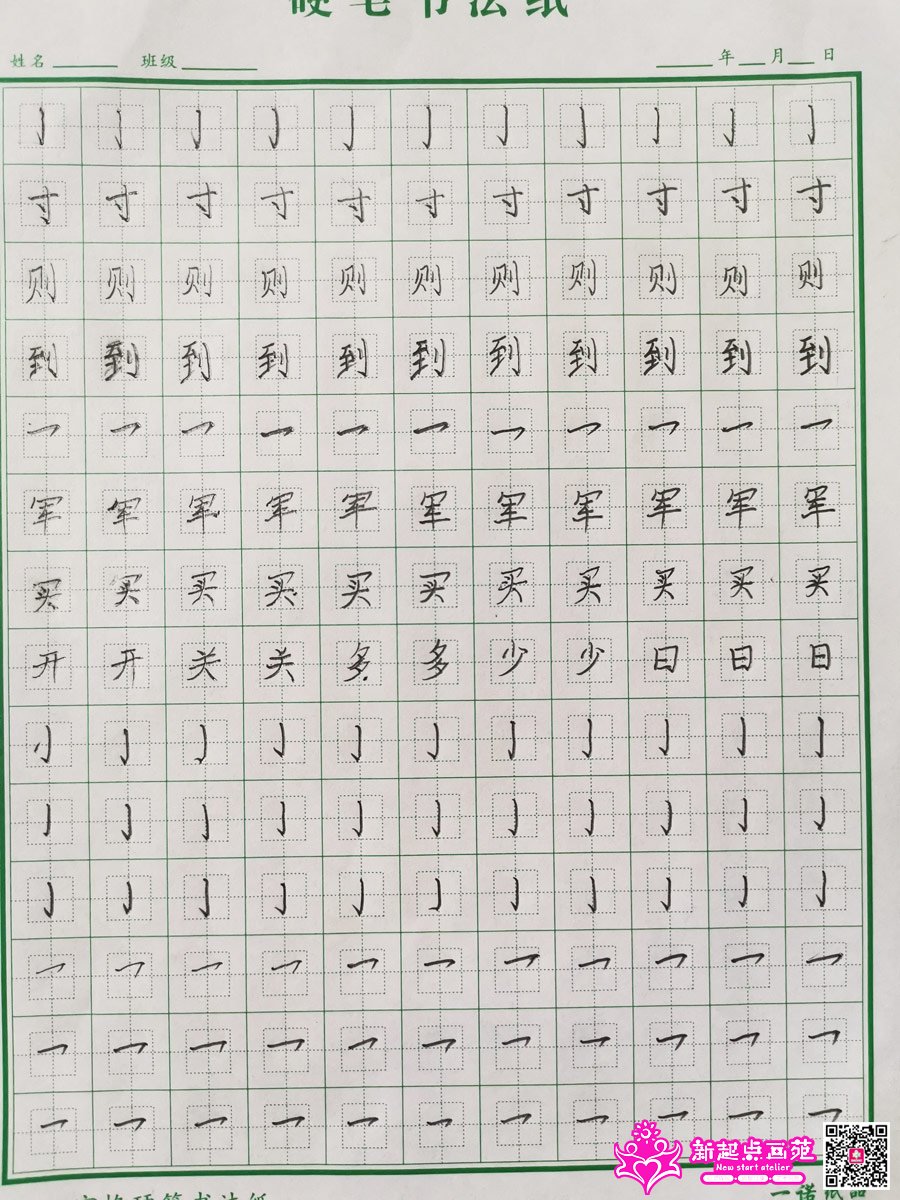 硬笔书法纸
姓名 班级 年 月 日
亅 亅 亅 亅 亅 亅 亅 亅 亅 亅 亅
寸 寸 寸 寸 寸 寸 寸 寸 寸 寸 寸
则 则 则 则 则 则 则 则 则 则 则
到 到 到 到 到 到 到 到 到 到 到
乛 乛 乛 乛 乛 乛 乛 乛 乛 乛 乛
军 军 军 军 军 军 军 军 军 军 军
买 买 买 买 买 买 买 买 买 买 买
开 开 关 关 多 多 少 少 日 日 日
小 亅 亅 亅 亅 亅 亅 亅 亅 亅 亅
亅 亅 亅 亅 亅 亅 亅 亅 亅 亅 亅
亅 亅 亅 亅 亅 亅 亅 亅 亅 亅 亅
乛 乛 乛 乛 乛 乛 乛 乛 乛 乛 乛
乛 乛 乛 乛 乛 乛 乛 乛 乛 乛 乛
乛 乛 乛 乛 乛 乛 乛 乛 乛 乛 乛
新起点画苑
New start atelier
硬笔书法纸
一诺纸品